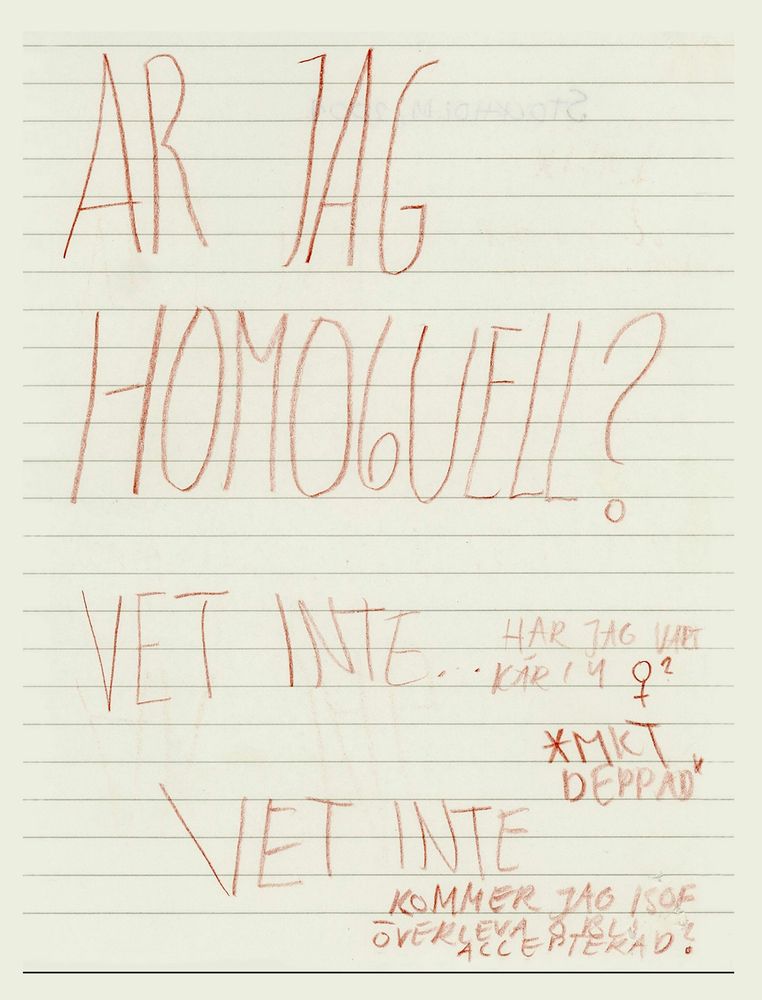 ÄR JAG
HOMOGUELL?
VET INTE...
HAR JAG VART
KÄR I 4 ♀?
*MKT
DEPPAD*
VET INTE
KOMMER JAG ISOF
ÖVERLEVA & BLI
ACCEPTERAD?